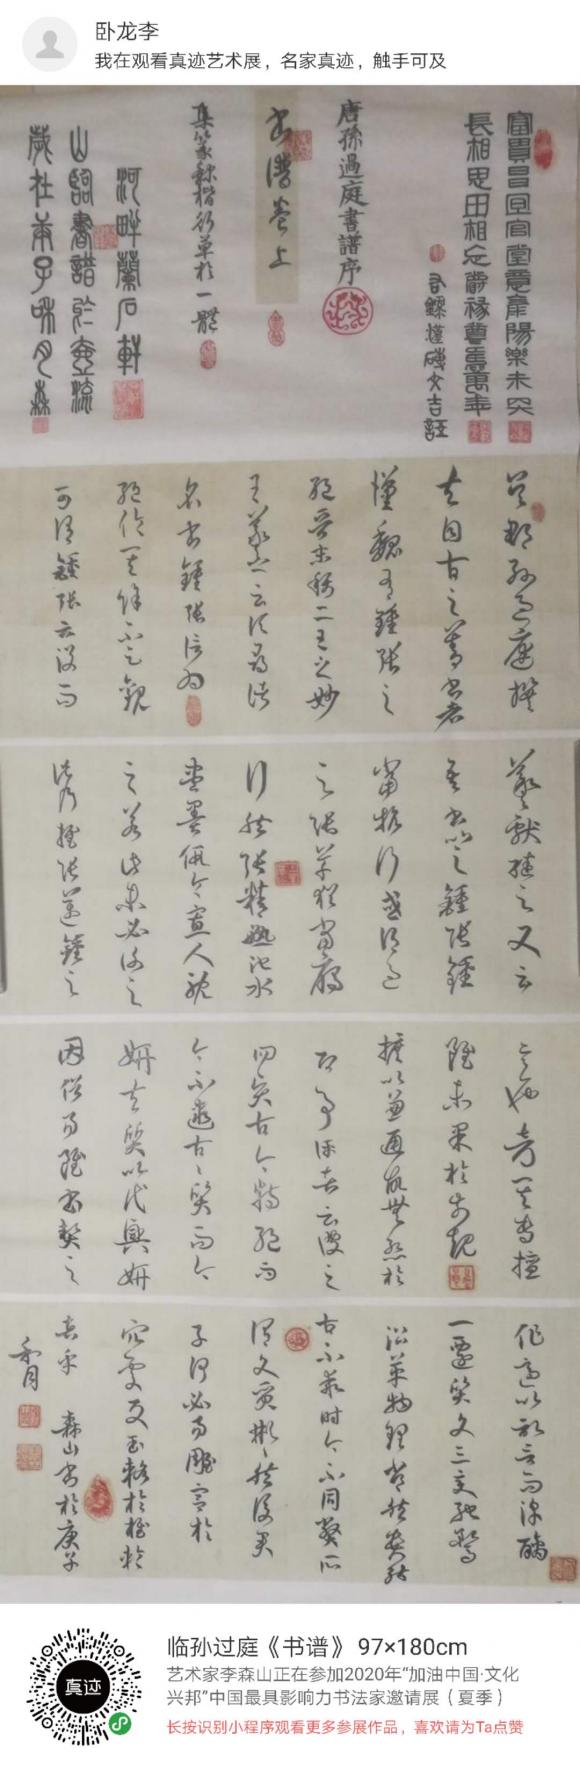 卧龙李
我在观看真迹艺术展，名家真迹，触手可及
富貴昌宜官堂意康陽樂未央
長相思毋相忘爵祿尊壽萬年
唐孫過庭書譜序
書譜卷上
集篆隸楷行草於一體
河畔蘭石軒
山臨書譜於壺流
歲在庚子 月森
吳郡孫過庭撰
夫自古之善書者
漢魏有鍾張之
絕晉末稱二王之妙
王羲之云頃尋諸
名書鍾張信為
絕倫其餘不足觀
可謂鍾張云沒而
羲獻繼之又云
吾書比之鍾張鍾
當抗行或謂過
之張草猶當雁
行然張精熟池水
盡墨假令寡人耽
之若此未必謝之
此乃推張邁鍾之
意也考其專擅
雖未果於前規
摭以兼通故無慚於
即事評者云彼之
四賢古今特絕而
今不逮古古質而今
妍夫質以代興妍
因俗易雖書契之
作適以記言而淳醨
一遷質文三變馳騖
沿革物理常然貴能
古不乖時今不同弊所
謂文質彬彬然後君
子何必易雕宮於
穴處反玉輅於椎輪
者乎 森山書於庚子
真迹
临孙过庭《书谱》 97×180cm
艺术家李森山正在参加2020年“加油中国·文化
兴邦”中国最具影响力书法家邀请展（夏季）
长按识别小程序观看更多参展作品，喜欢请为Ta点赞